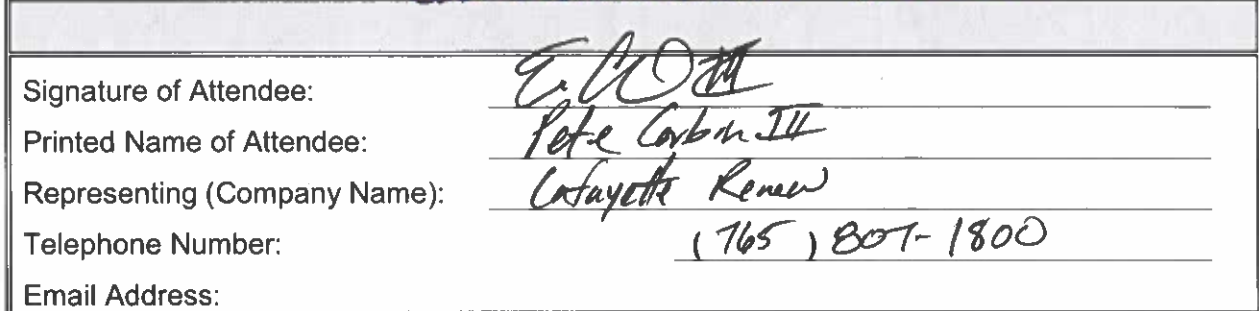 Signature of Attendee:
Printed Name of Attendee: Pete Carbon III
Representing (Company Name): Lafayette Renew
Telephone Number: (765) 807-1800
Email Address: